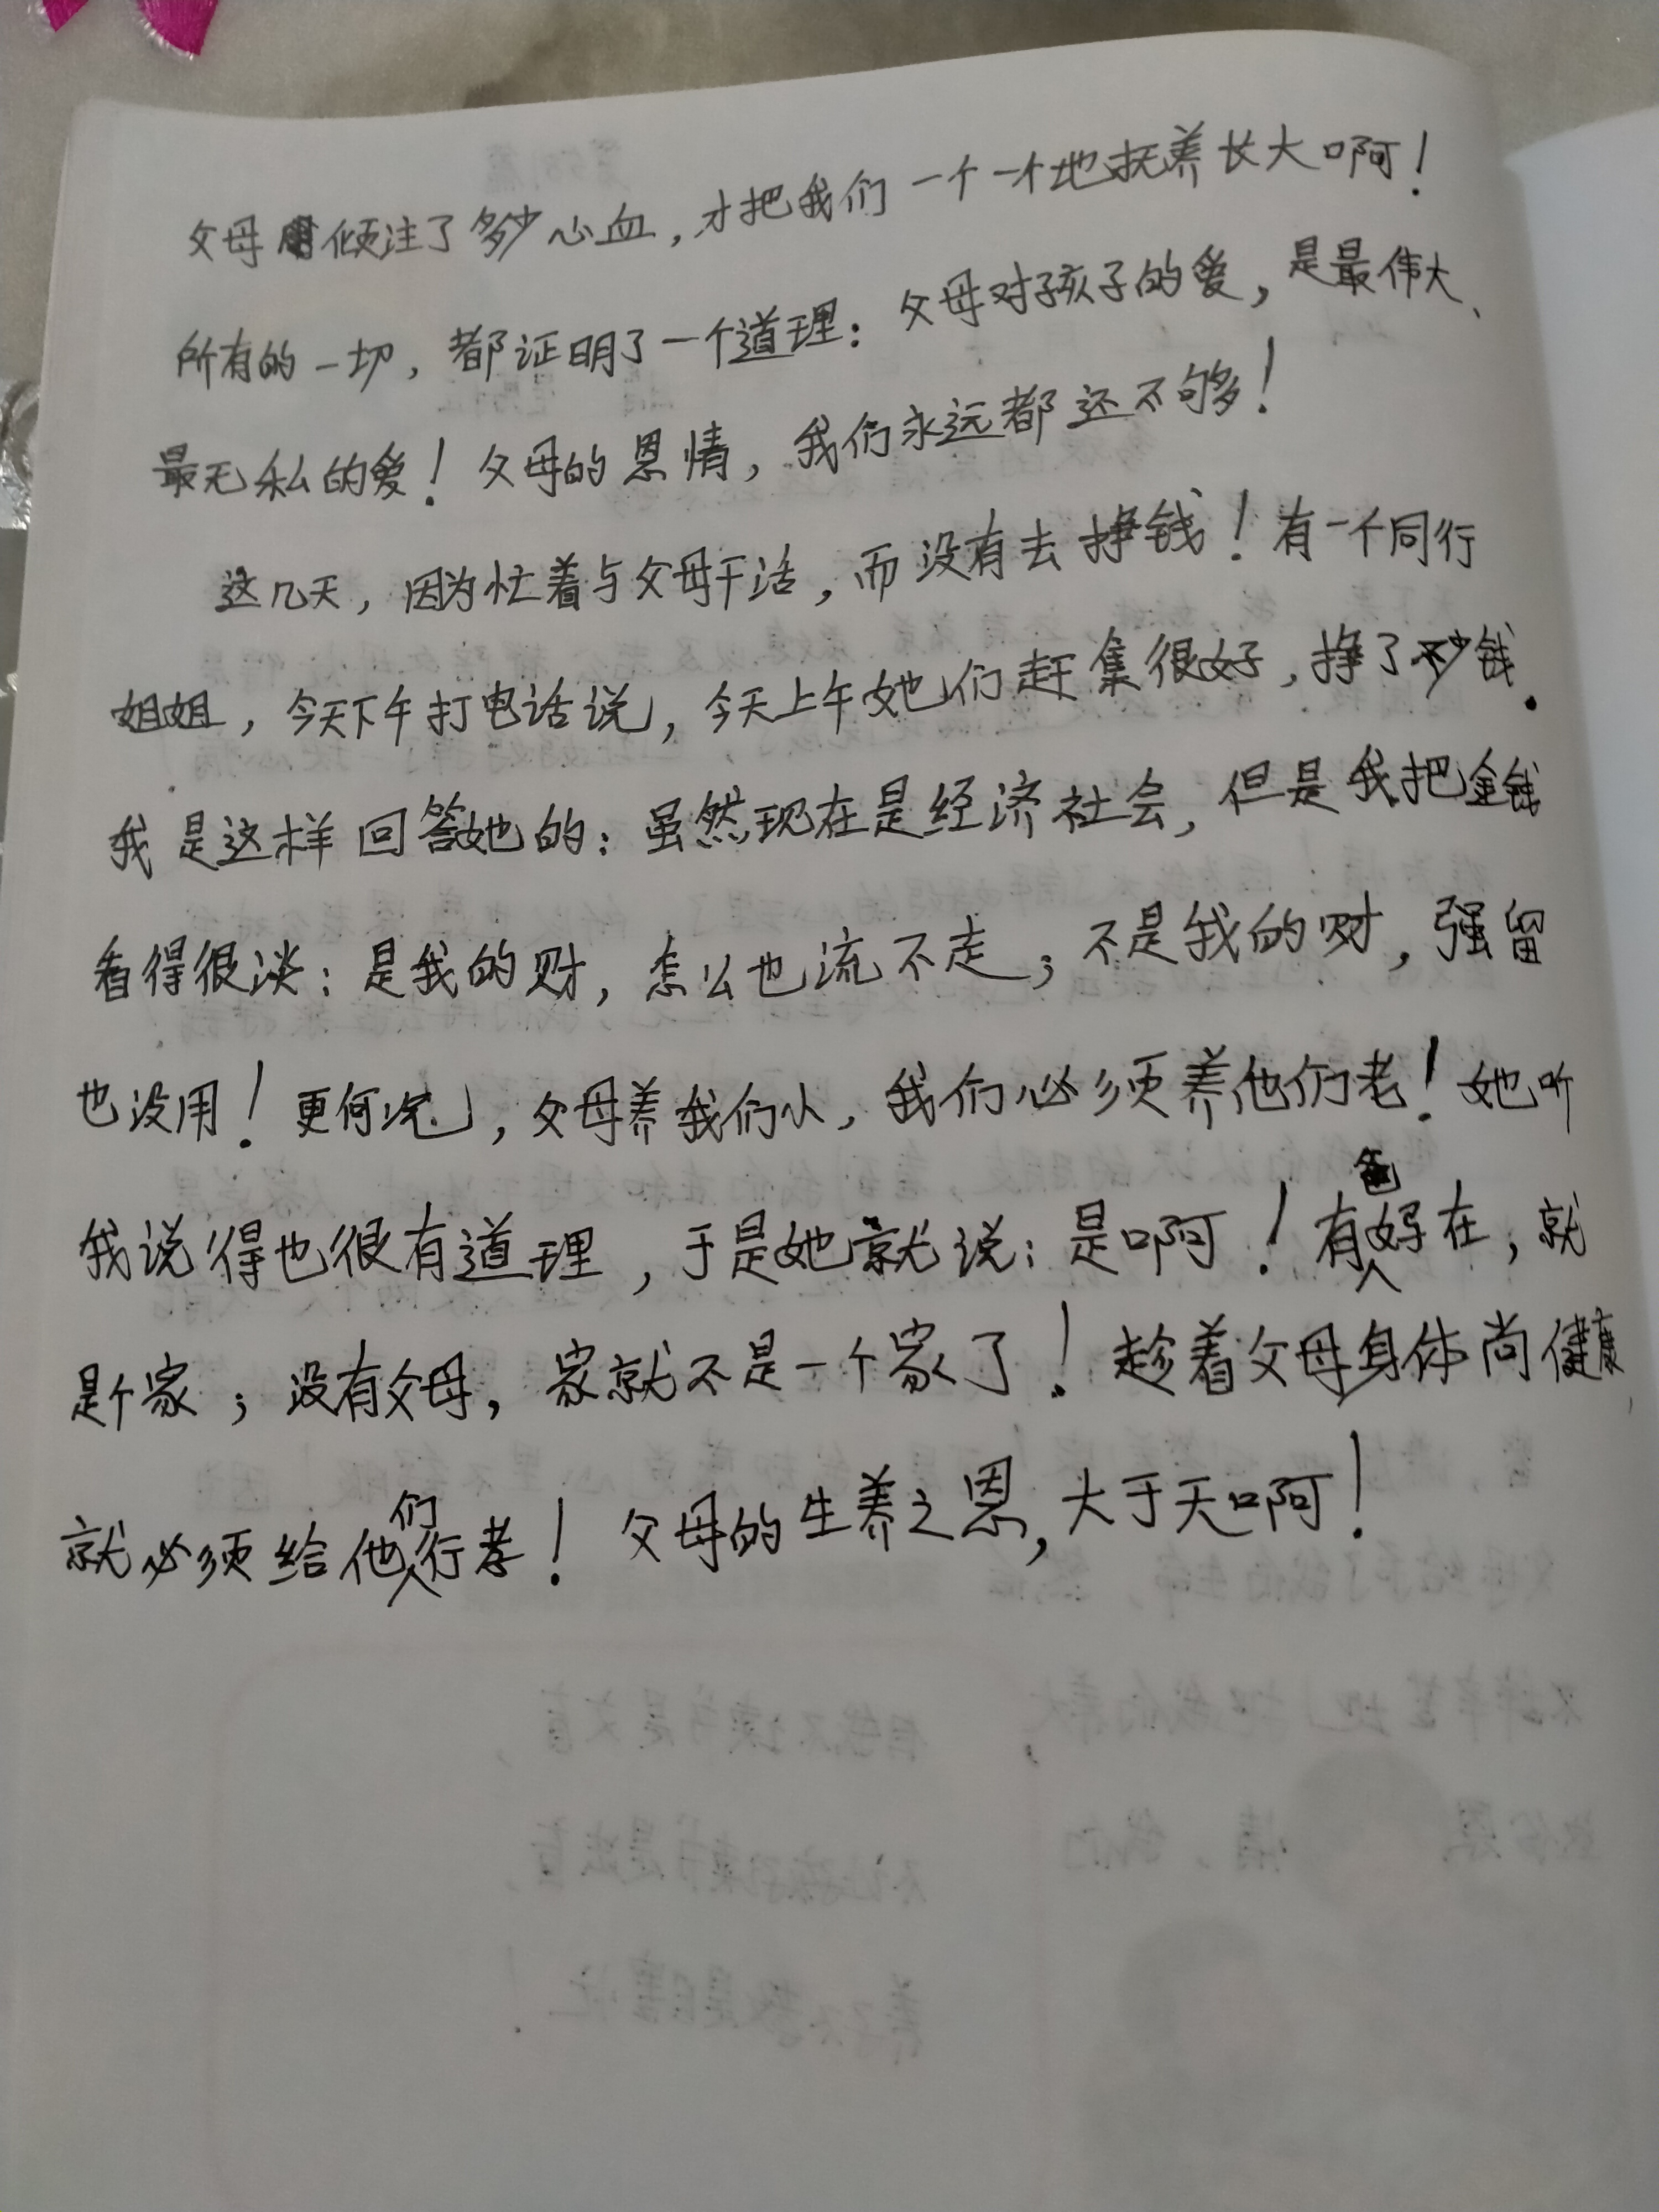 父母倾注了多少心血，才把我们一个一个地抚养长大啊！
所有的一切，都证明了一个道理：父母对孩子的爱，是最伟大、
最无私的爱！父母的恩情，我们永远都还不够！
这几天，因为忙着与父母干活，而没有去挣钱！有一个同行
姐姐，今天下午打电话说，今天上午她们赶集很好，挣了不少钱。
我是这样回答她的：虽然现在是经济社会，但是我把金钱
看得很淡：是我的财，怎么也流不走；不是我的财，强留
也没用！更何况，父母养我们小，我们必须养他们老！她听
我说得也很有道理，于是她就说：是啊！有爸妈在，就
是个家；没有父母，家就不是一个家了！趁着父母身体尚健康，
就必须给他们行孝！父母的生养之恩，大于天啊！